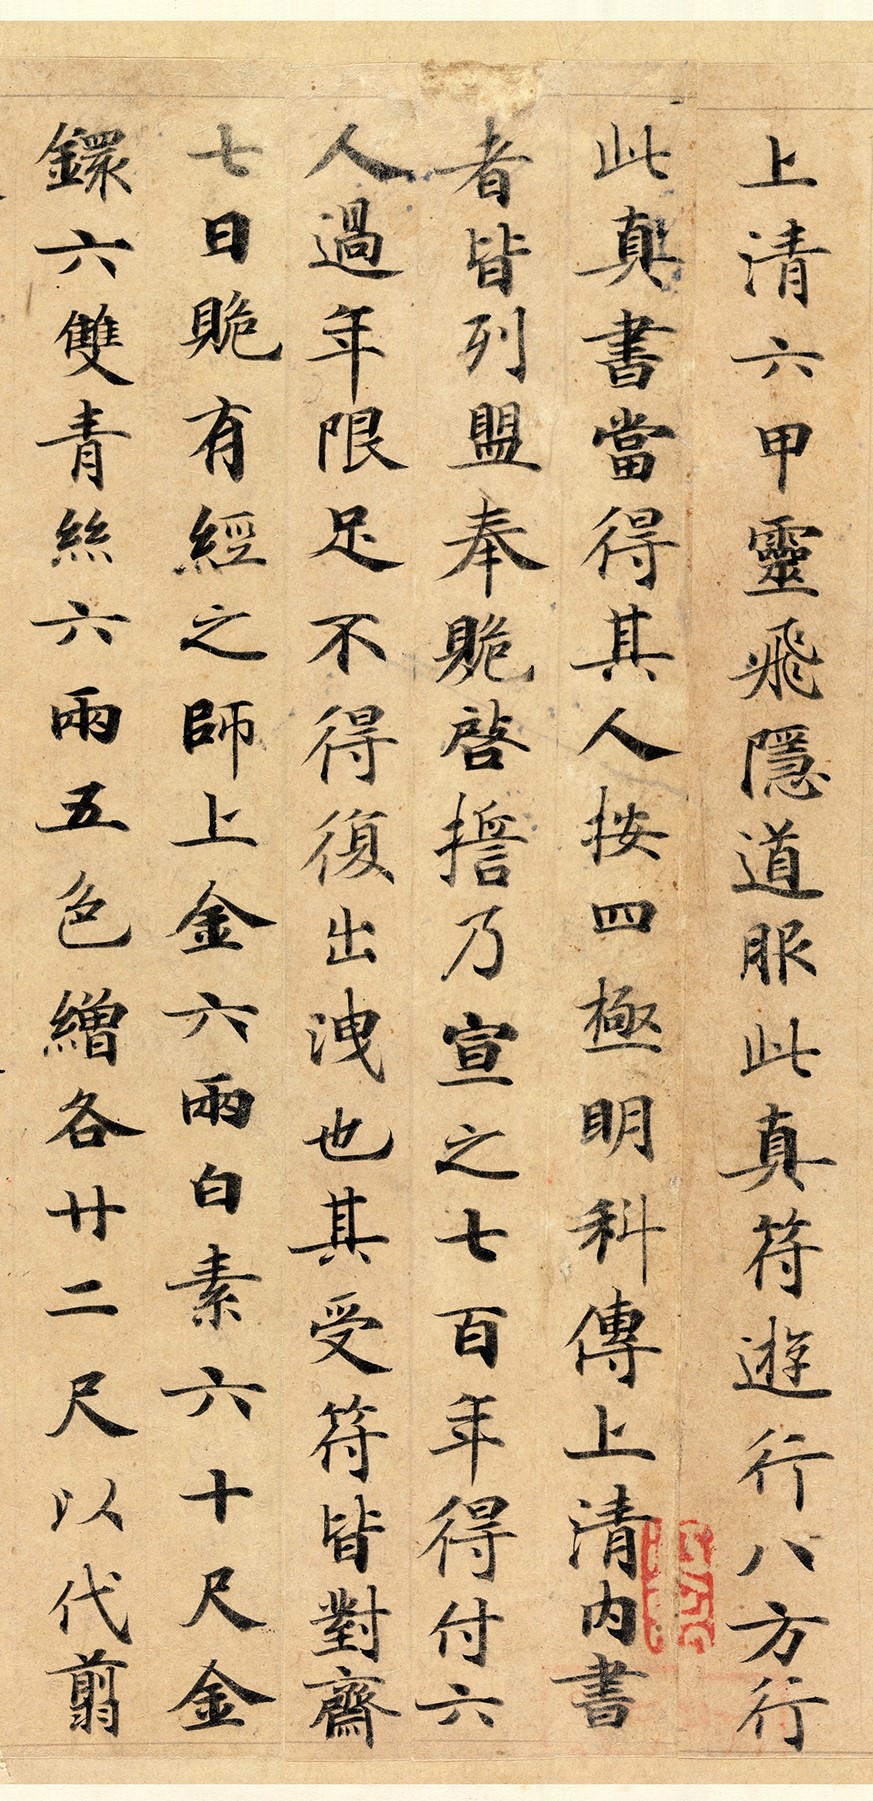 上清六甲靈飛隱道服此真符遊行八方行
此真書當得其人按四極明科傳上清內書
者皆列盟奉跪啓誓乃宣之七百年得付六
人過年限足不得復出洩也其受符皆對齋
七日跪有經之師上金六兩白素六十尺金
鐶六雙青絲六兩五色繒各廿二尺以代翦